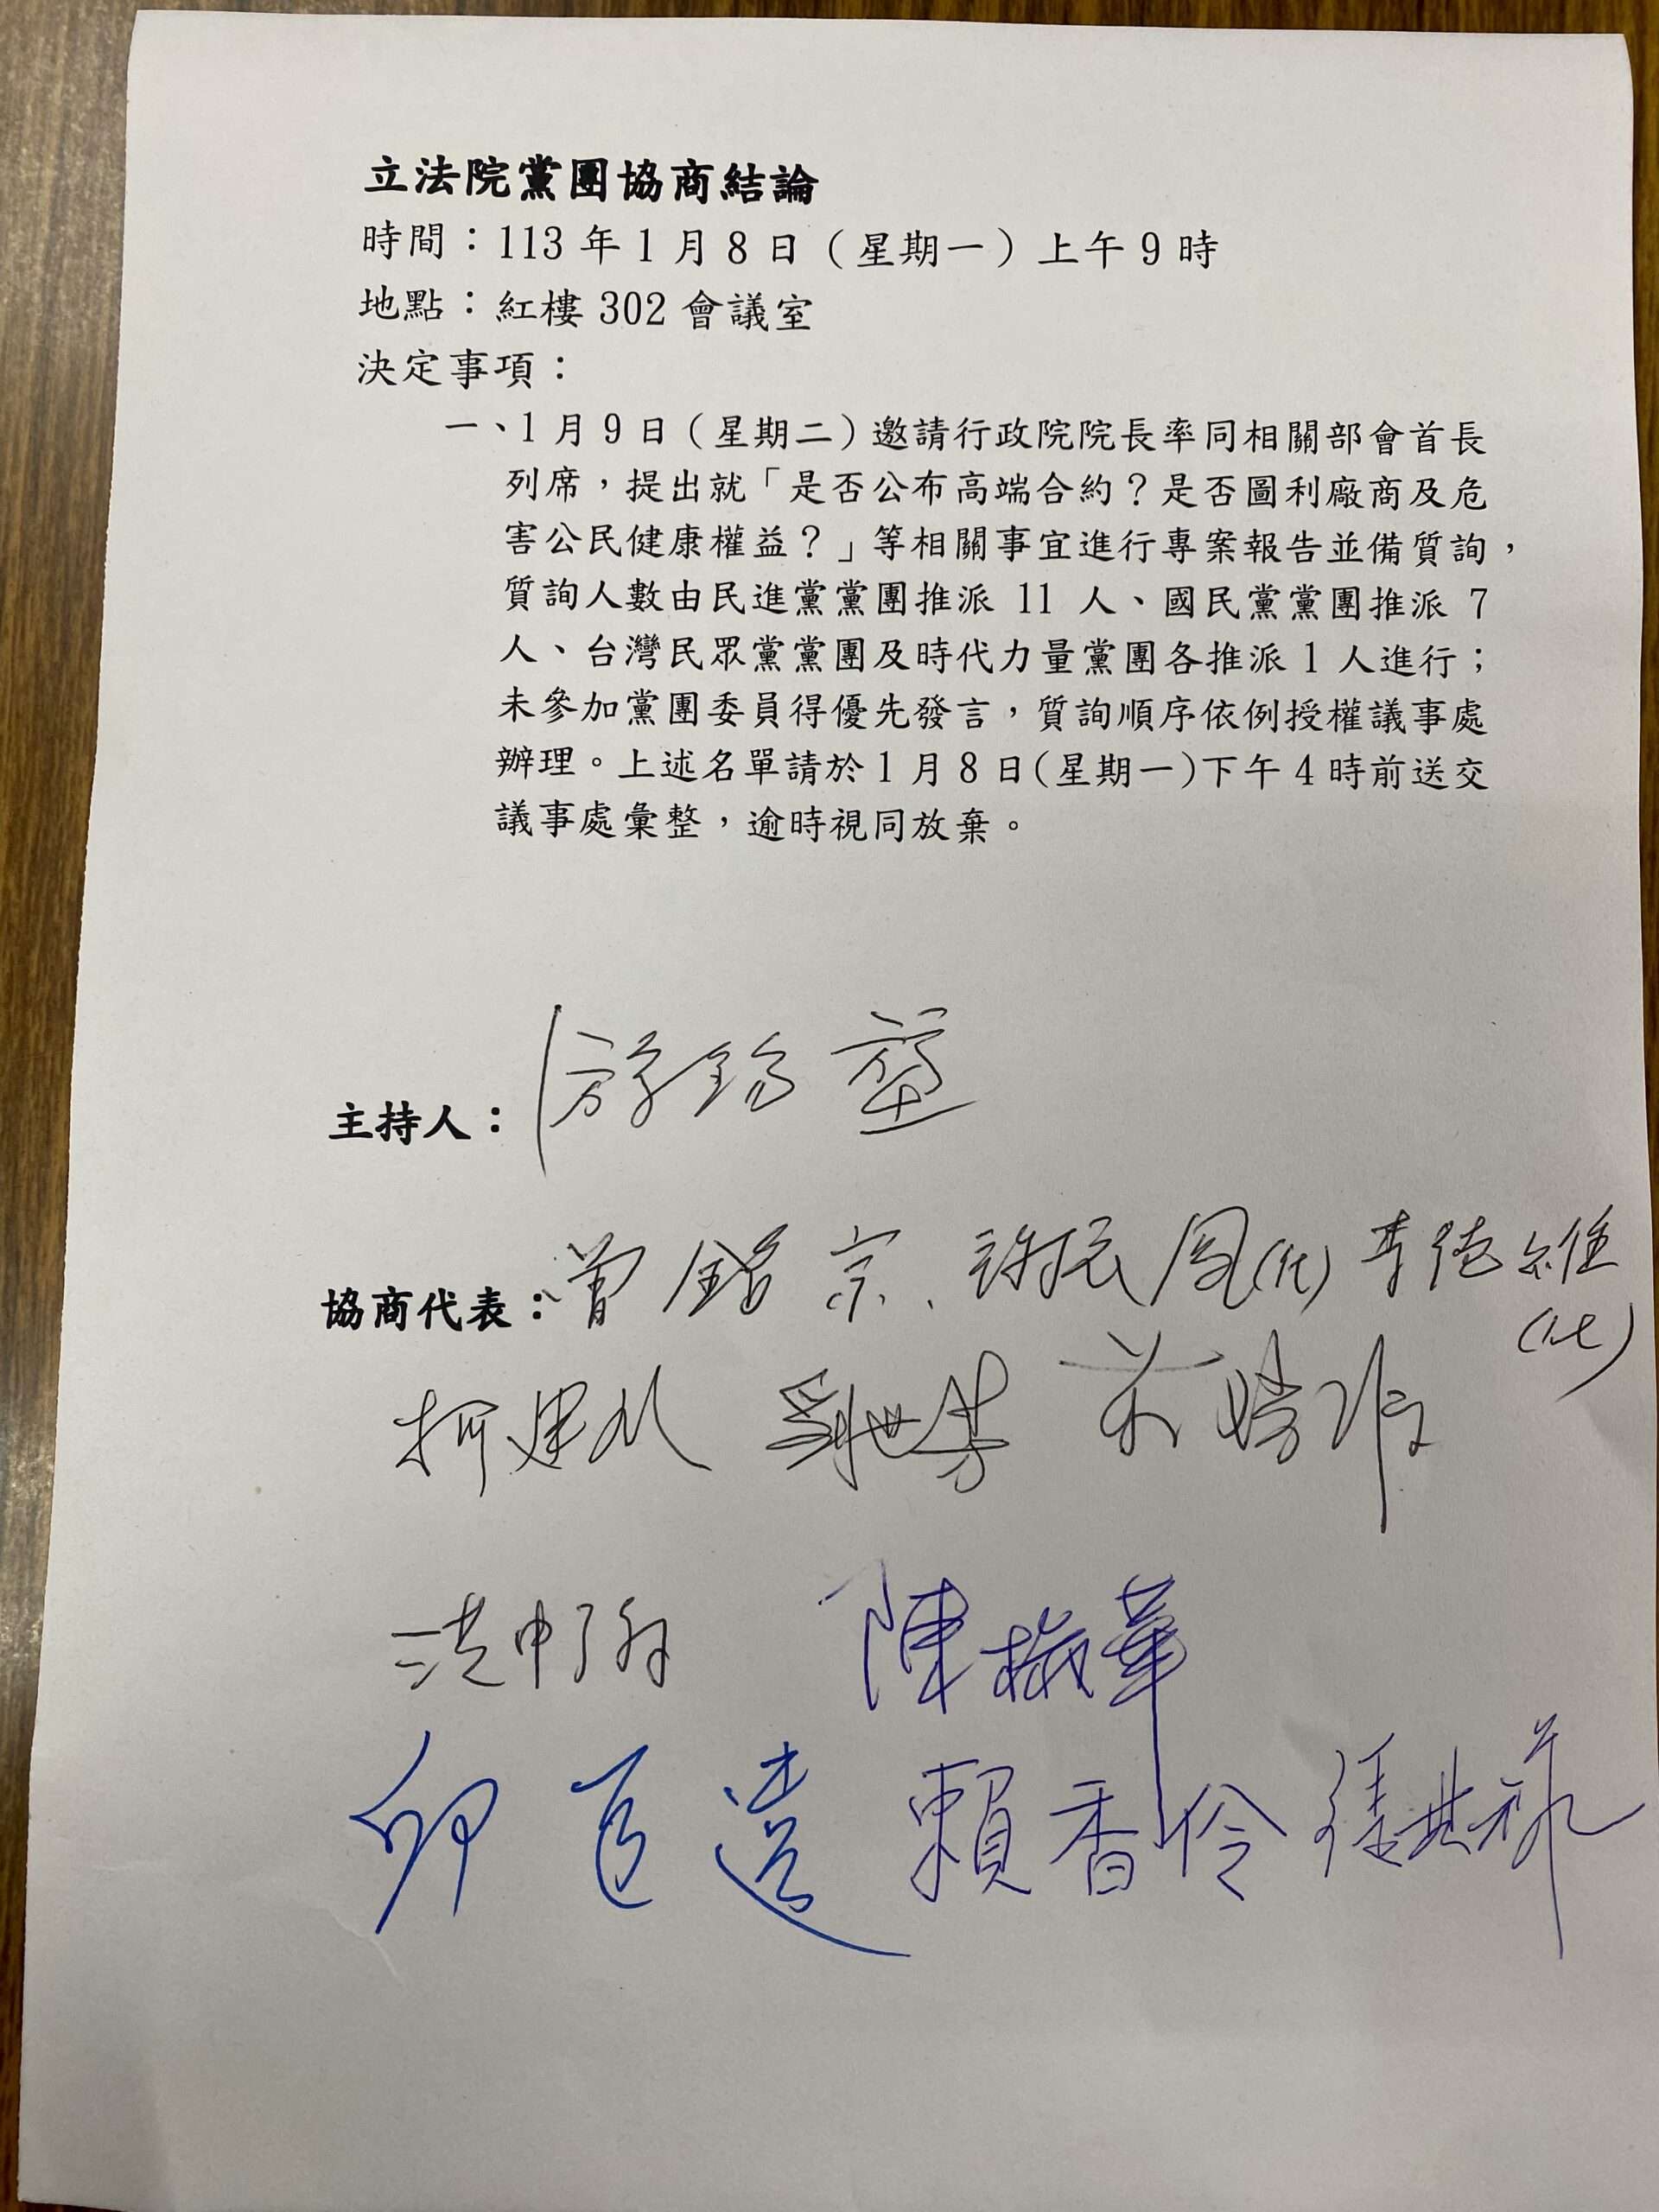 立法院黨團協商結論
時間：113年1月8日（星期一）上午9時
地點：紅樓302會議室
決定事項：
一、1月9日（星期二）邀請行政院院長率同相關部會首長
列席，提出就「是否公布高端合約？是否圖利廠商及危
害公民健康權益？」等相關事宜進行專案報告並備質詢，
質詢人數由民進黨黨團推派11人、國民黨黨團推派7
人、台灣民眾黨黨團及時代力量黨團各推派1人進行；
未參加黨團委員得優先發言，質詢順序依例授權議事處
辦理。上述名單請於1月8日(星期一)下午4時前送交
議事處彙整，逾時視同放棄。
主持人：游錫堃
協商代表：曾銘宗、李德維
(代)
柯建 劉世芳
洪申翰 陳椒華
邱臣遠 賴香伶